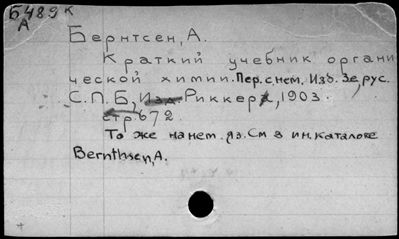 Б489к
А
Бернтсен, А.
Краткий учебник органи
ческой химии. Пер. с нем. Изд. 3е, рус.
С.П.Б., Изд. Риккер, 1903.
стр 672.
То же на нем. яз. См в ин. каталоге
Bernthsen, A.